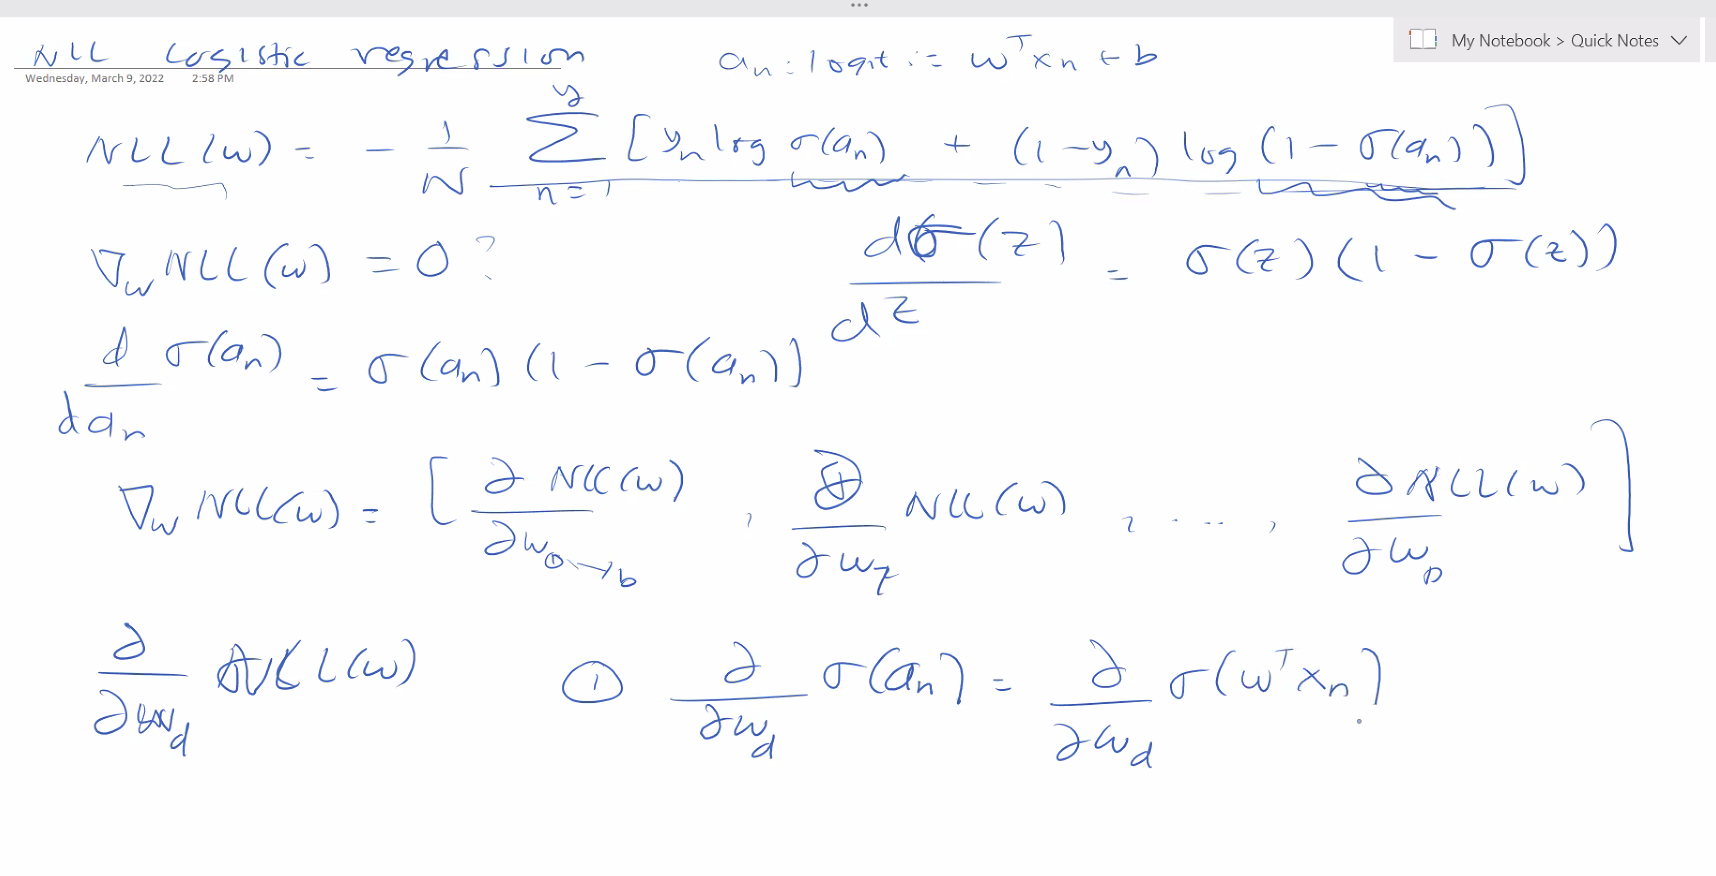 My Notebook > Quick Notes
NLL Logistic regression
a_n : logit := w^T x_n + b
Wednesday, March 9, 2022 2:58 PM
NLL(w) = - 1/N Σ_{n=1} [y_n log σ(a_n) + (1-y_n) log (1-σ(a_n))]
∇_w NLL(w) = 0 ?
dσ(z)/dz = σ(z)(1-σ(z))
d/da_n σ(a_n) = σ(a_n)(1-σ(a_n))
∇_w NLL(w) = [∂NLL(w)/∂w_0→b, ∂/∂w_1 NLL(w), ...., ∂NLL(w)/∂w_D]
∂/∂w_d NLL(w) ① ∂/∂w_d σ(a_n) = ∂/∂w_d σ(w^T x_n)